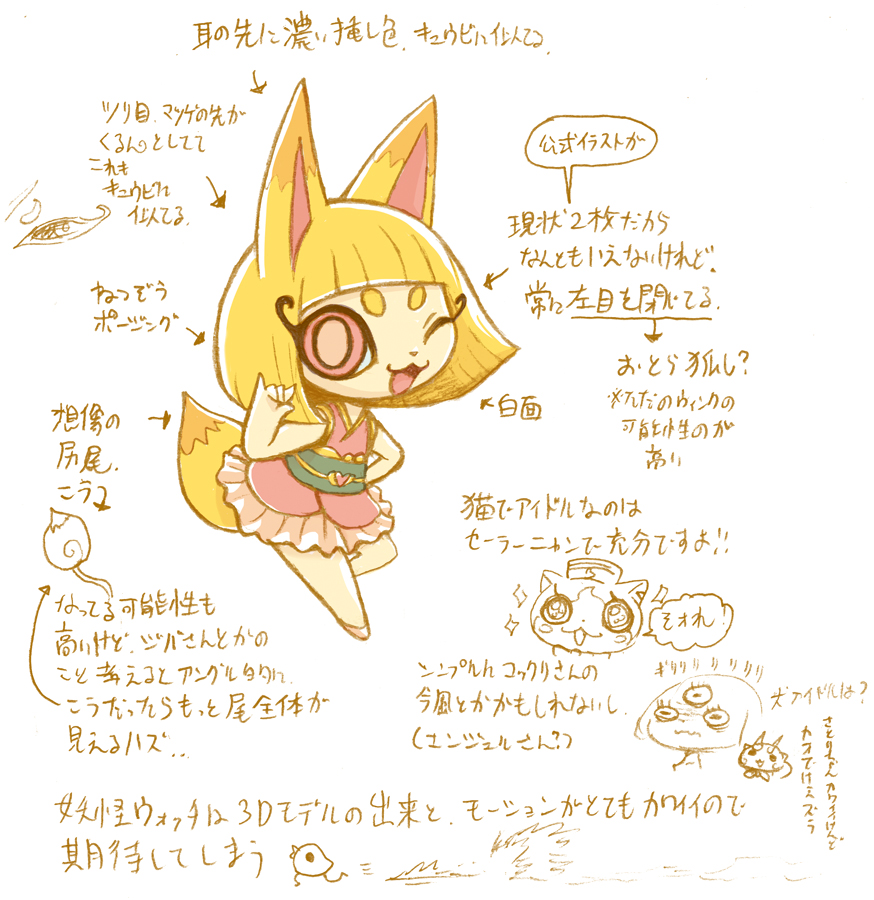 耳の先に濃い挿し色、キュウビに似てる。
ツリ目、マツゲの先が
くるんっとしてて
これも
キュウビに
似てる。
公式イラストが
現状2枚だから
なんともいえないけれど、
常に左目を閉じてる。
おとら狐し?
※ただのウィンクの
可能性のが
高い
ねつぞう
ポージング
白面
想像の
尻尾。
こう
なってる可能性も
高いけど、ジバさんとかの
こと考えるとアングル的に
こうだったらもっと尾全体が
見えるハズ..
猫でアイドルなのは
セーラーニャンで充分ですよ!!
それ!
シンプルに コックリさんの
今風とかかもしれないし。
(エンジェルさん?)
ギリリリリリリリ
犬アイドルは?
さとりちゃんカワイイけんど
カオでけえズラ
妖怪ウォッチは3Dモデルの出来と、モーションがとてもカワイイので
期待してしまう